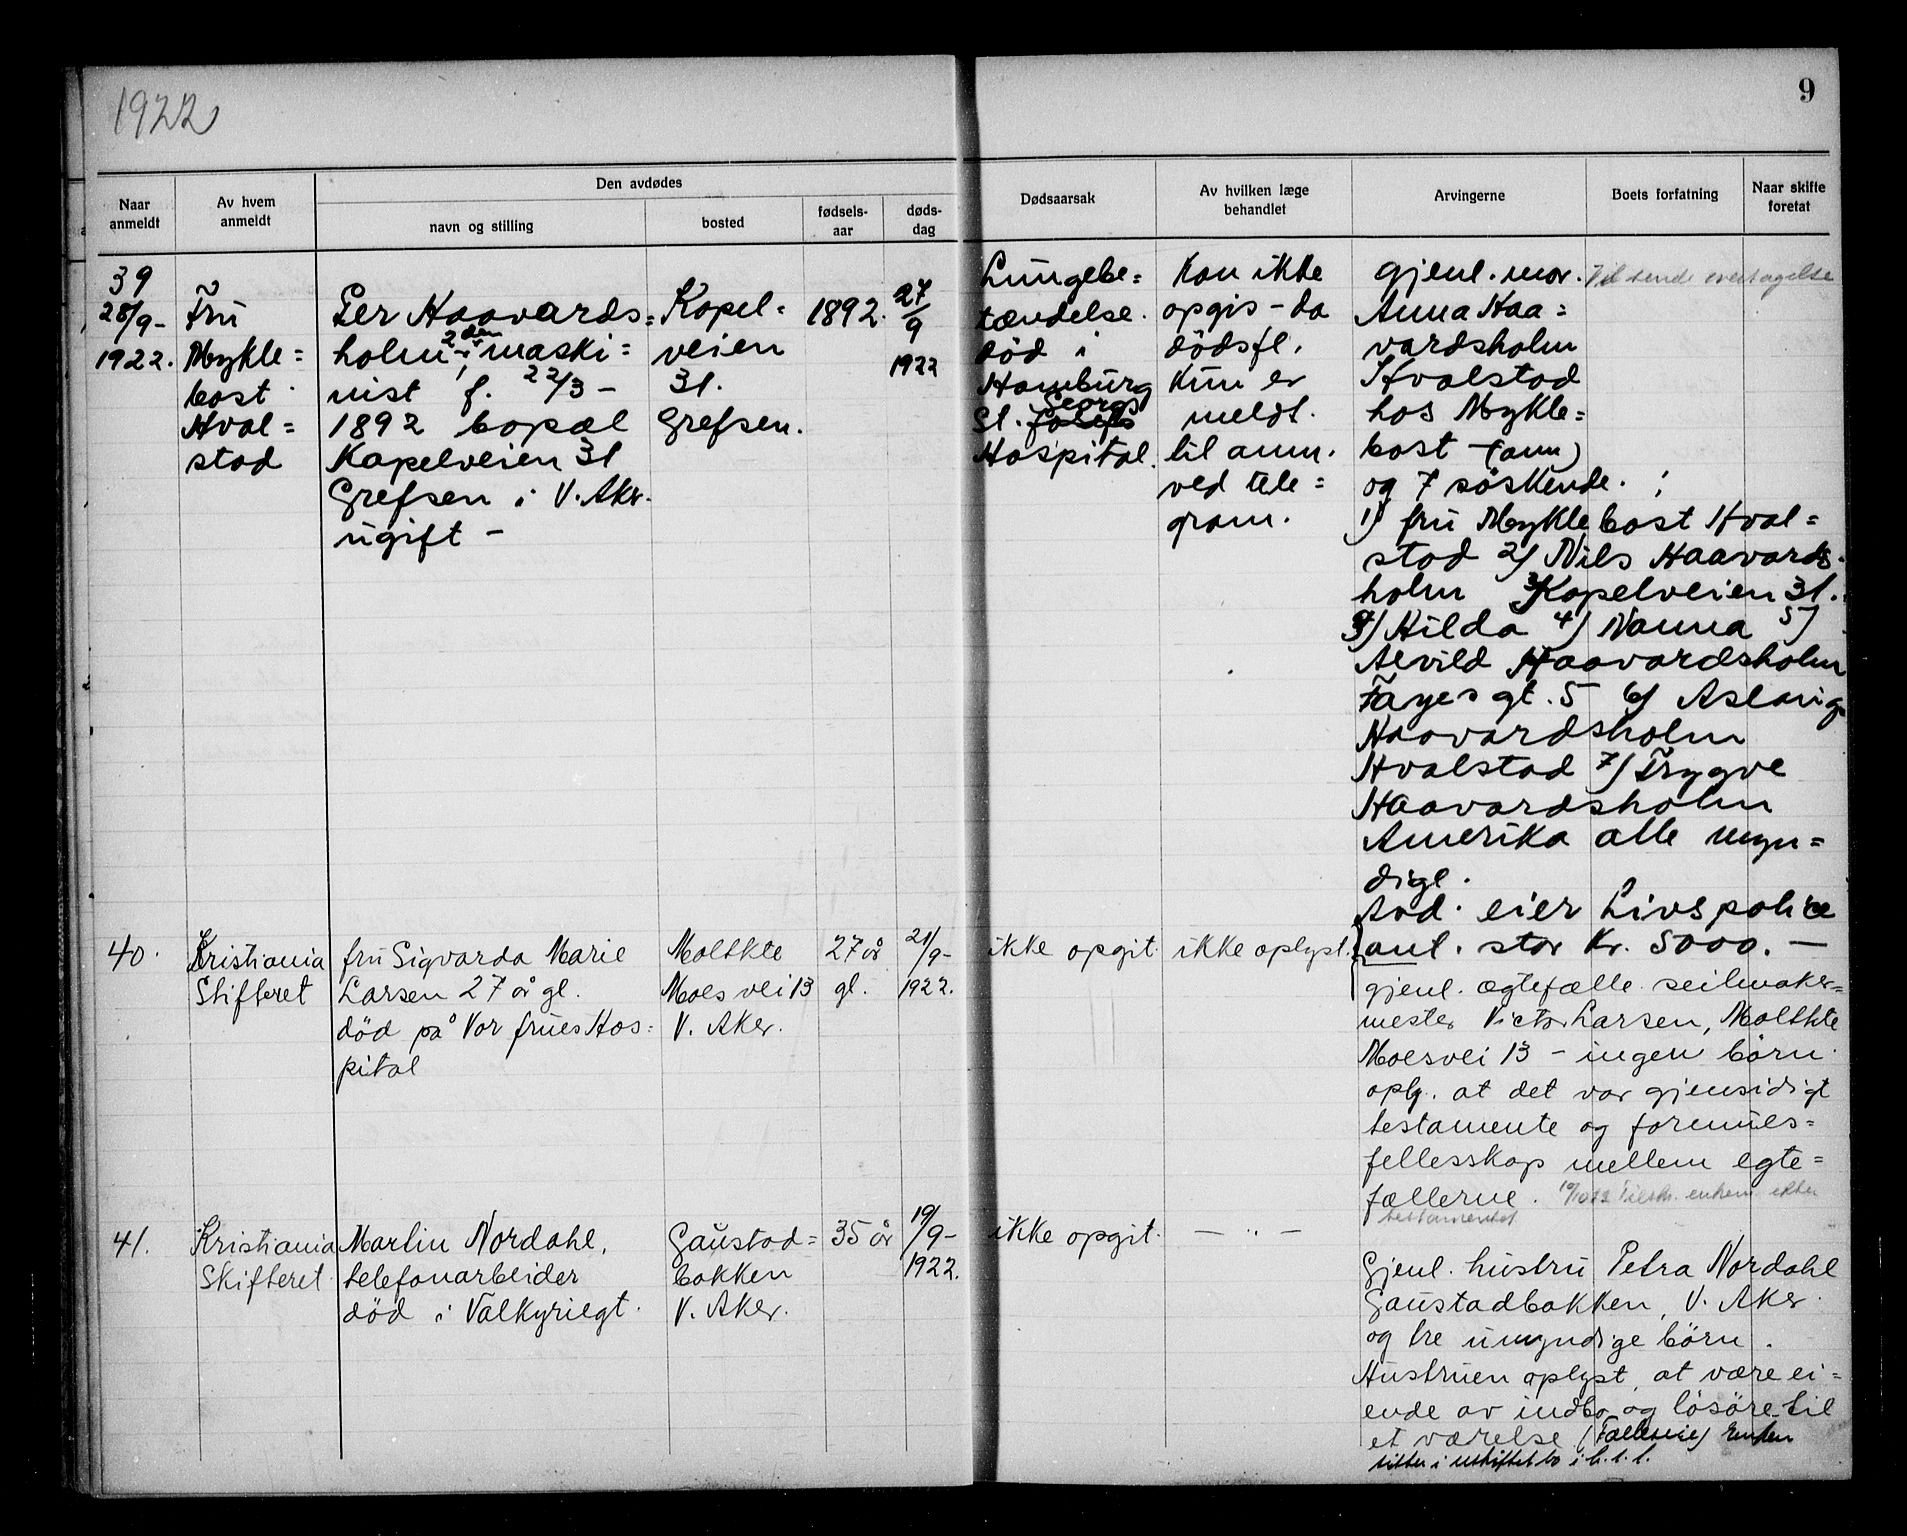 1922
9
Naar anmeldt
Av hvem anmeldt
Den avdødes
navn og stilling
bosted
fødsels-aar
døds-dag
Dødsaarsak
Av hvilken læge behandlet
Arvingerne
Boets forfatning
Naar skifte foretat
39
28/9-
1922.
Fru
Mykle=
bost
Hval=
stad
Per Haavards=
holm, 2den maski=
nist f. 22/3-
1892 bopæl
Kapelveien 31
Grefsen i V. Aker.
ugift -
Kapel=
veien
31.
Grefsen.
1892.
27/9
1922
Lungebe=
tændelse.
död i
Hamburg
St. Georgs
Hospital.
Kan ikke
opgis - da
dödsfl.
kun er
meldt.
til anm.
ved tele=
gram.
gjenl. mor.
Anna Haa=
vardsholm
Hvalstad
hos Mykle=
bost - (anm)
og 7 söskende. ;
1) fru Myklebost Hval=
stad 2) Nils Haavards-
holm Kapelveien 31.
3) Hilda 4) Nanna 5)
Alvild Haavardsholm
Fayes gt. 5 6) Aslaug
Haavardsholm
Hvalstad 7) Trygve
Haavardsholm
Amerika alle myn=
dige.
Avd. eier Livspolice
anl. stor Kr. 5000. -
40.
Kristiania
Skifteret
fru Sigvarda Marie
Larsen 27 år gl.
död på Vor frues Hos=
pital
Moltkte
Moes vei 13
V. Aker.
27 år
gl.
21/9-
1922.
ikke opgit.
ikke oplyst.
gjenl. ægtefælle seilmaker=
mester Victor Larsen, Moltkte
Moesvei 13 - ingen börn.
oply. at det var gjensidigt
testamente og formues=
fellesskap mellem egte=
fællerne.
testamentet
41.
Kristiania
Skifteret
Martin Nordahl,
telefonarbeider
död i Valkyriegt.
Gaustad=
bakken
V. Aker.
35 år
19/9-
1922.
ikke opgit.
— " —
Gjenl. hustru Petra Nordahl
Gaustadbakken, V. Aker.
og tre umyndige börn.
Hustruen oplyst, at være ei=
ende av indbo og lösöre til
et værelse (Fælleseie) Enken
sitter i uskiftet bo i h. t. l.